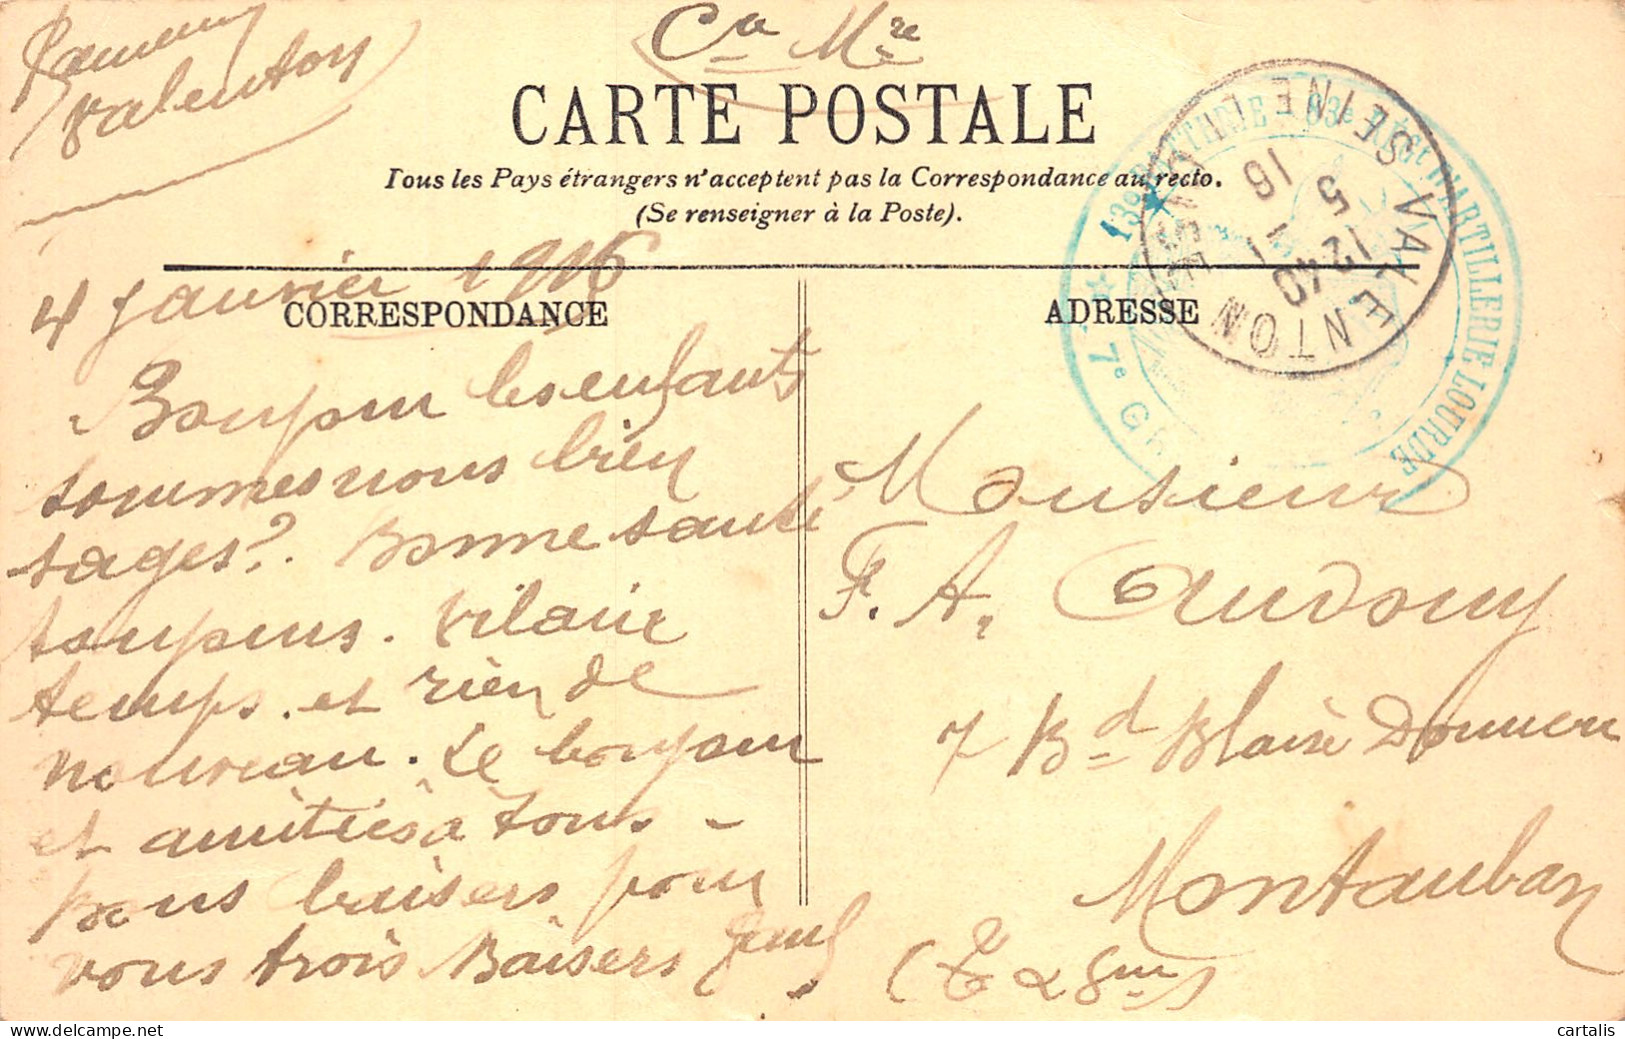 Valenton
Cn Mre
CARTE POSTALE
Tous les Pays étrangers n'acceptent pas la Correspondance au recto.
(Se renseigner à la Poste).
4 Janvier 1916
CORRESPONDANCE
Bonjour les enfants
sommes nous bien
sages?. Bonne santé
toujours. Vilain
temps. et rien de
nouveau. Le bonjour
et amitiés à tous -
bons baisers pour
vous trois Baisers
ADRESSE
Monsieur
F. A. Audouy
7 Bd Blaise Doumerc
Montauban
(T & Gne)
VALENTON
SEINE ET OISE
12 40
5 1
16
83e Régt D'ARTILLERIE LOURDE
13e BATTERIE
7e G
cartalis delcampe.net